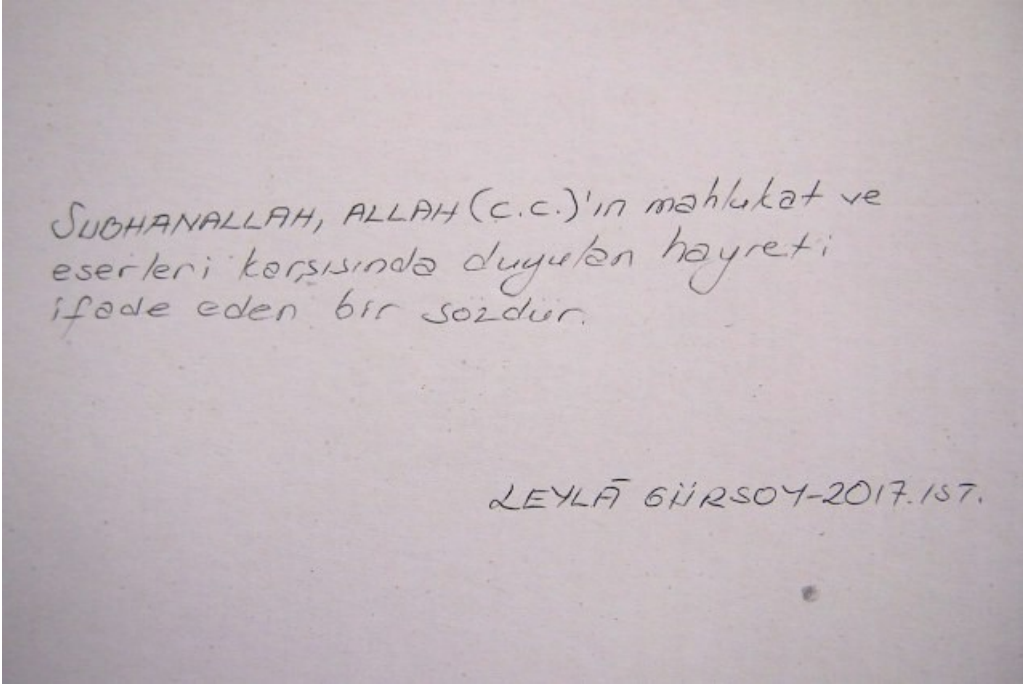 SUBHANALLAH, ALLAH (C.C.)'ın mahlukat ve
eserleri karşısında duyulan hayreti
ifade eden bir sözdür.
LEYLĀ GÜRSOY-2017.IST.